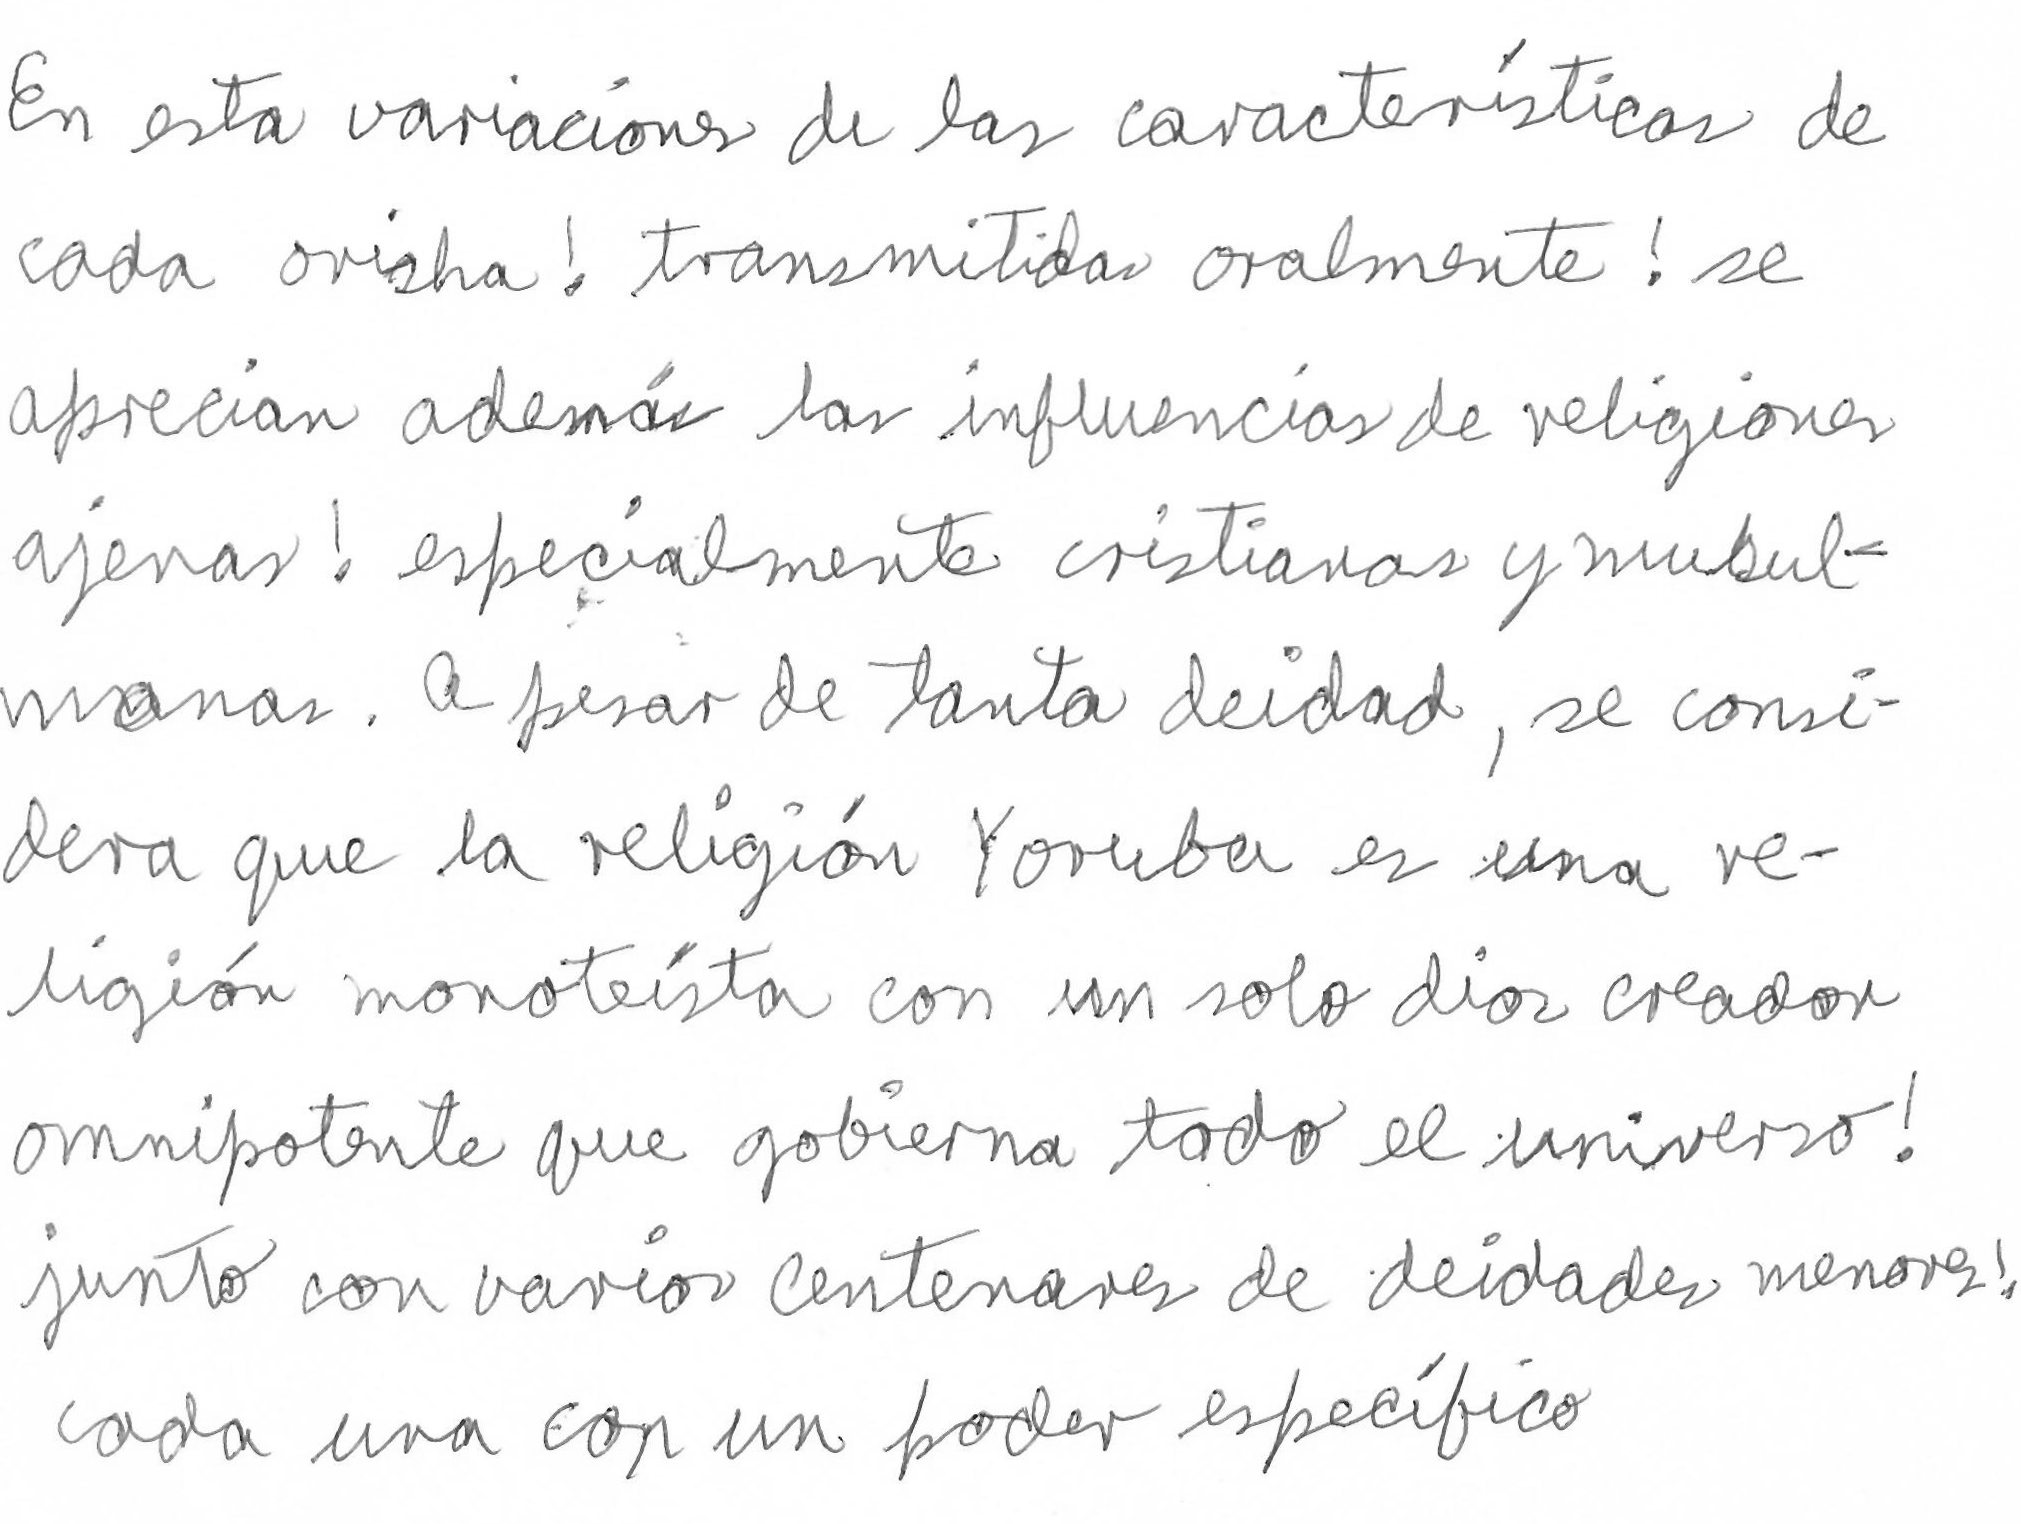 En esta variaciones de las características de
cada orisha! transmitidas oralmente! se
aprecian además las influencias de religiones
ajenas! especialmente cristianas y musul-
manas. A pesar de tanta deidad, se consi-
dera que la religión Yoruba es una re-
ligión monoteísta con un solo dios creador
omnipotente que gobierna todo el universo!
junto con varios centenares de deidades menores!
cada una con un poder específico